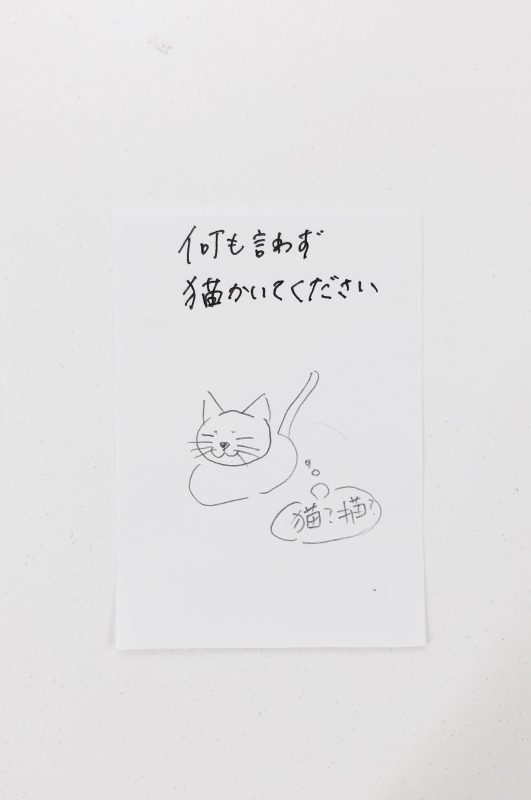 何も言わず
猫かいてください
猫?描?